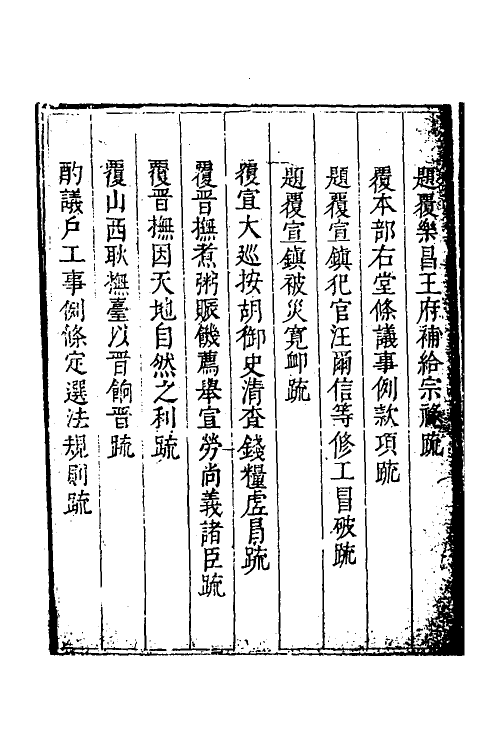 題覆樂昌王府補給宗祿疏
覆本部右堂條議事例款項疏
題覆宣鎮犯官汪爾信等修工冒破疏
題覆宣鎮被災寬卹疏
覆宣大巡按胡御史清査錢糧虛冒疏
覆晉撫煮粥賑饑薦舉宣勞尚義諸臣疏
覆晉撫因天地自然之利疏
覆山西耿撫臺以晉餉晉疏
酌議戶工事例條定選法規則疏